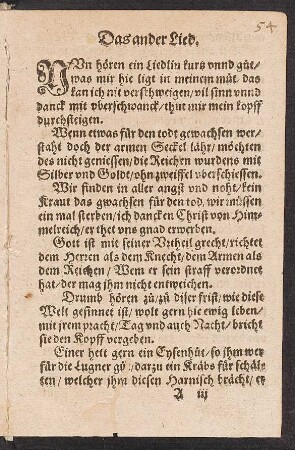 54
Das ander Lied.
NUn hören ein Liedlin kurtz vnnd gůt/
was mir hie ligt in meinem můt, das
kan ich nit verschweigen/vil sinn vnnd
danck mit vberschwanck/thut mir mein kopff
durchsteigen.
Wenn etwas für den todt gewachsen wer/
staht doch der armen Seckel lähr/möchten
des nicht geniessen/die Reichen wurdens mit
Silber vnd Goldt/ohn zweiffel vberschiessen.
Wir finden in aller angst vnd noht/kein
Kraut das gwachsen für den tod/wir müssen
ein mal sterben/ich dancken Christ von Him-
melreich/er thet vns gnad erwerben.
Gott ist mit seiner Vrtheil grecht/richtet
dem Herren als dem Knecht/dem Armen als
dem Reichen/Wem er sein straff verordnet
hat/der mag jhm nicht entweichen.
Drumb hören zů/zů diser frist/wie diese
Welt gesinnet ist/wolt gern hie ewig leben/
mit jrem pracht/Tag vnd auch Nacht/bricht
sie den Kopff vergeben.
Einer hett gern ein Eysenhůt/so jhm wer
für die Lugner gů/darzu ein Kräbs für schäl-
ten/welcher jhm diesen Harnisch brächt/er
A iij